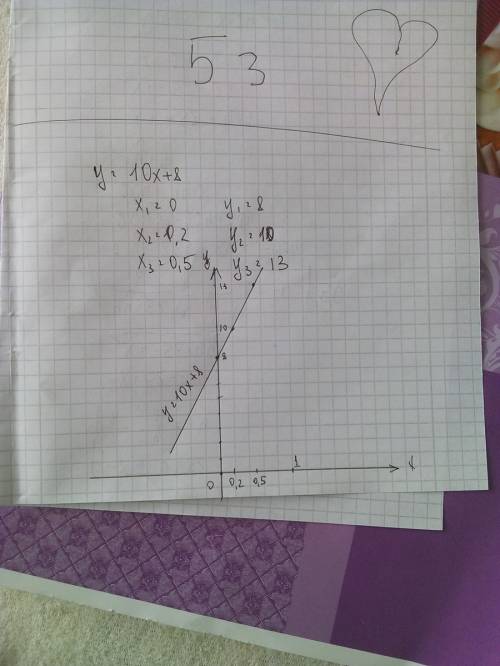 53
y = 10x+8
x₁ = 0 y₁ = 8
x₂ = 0,2 y₂ = 10
x₃ = 0,5 y₃ = 13
y
13
10
8
y = 10x+8
1
x
0 0,2 0,5